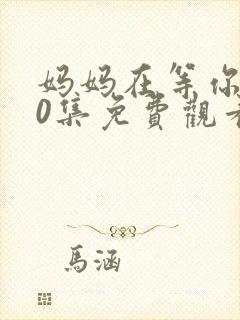 妈妈在等你
0集免費觀看
馬涵